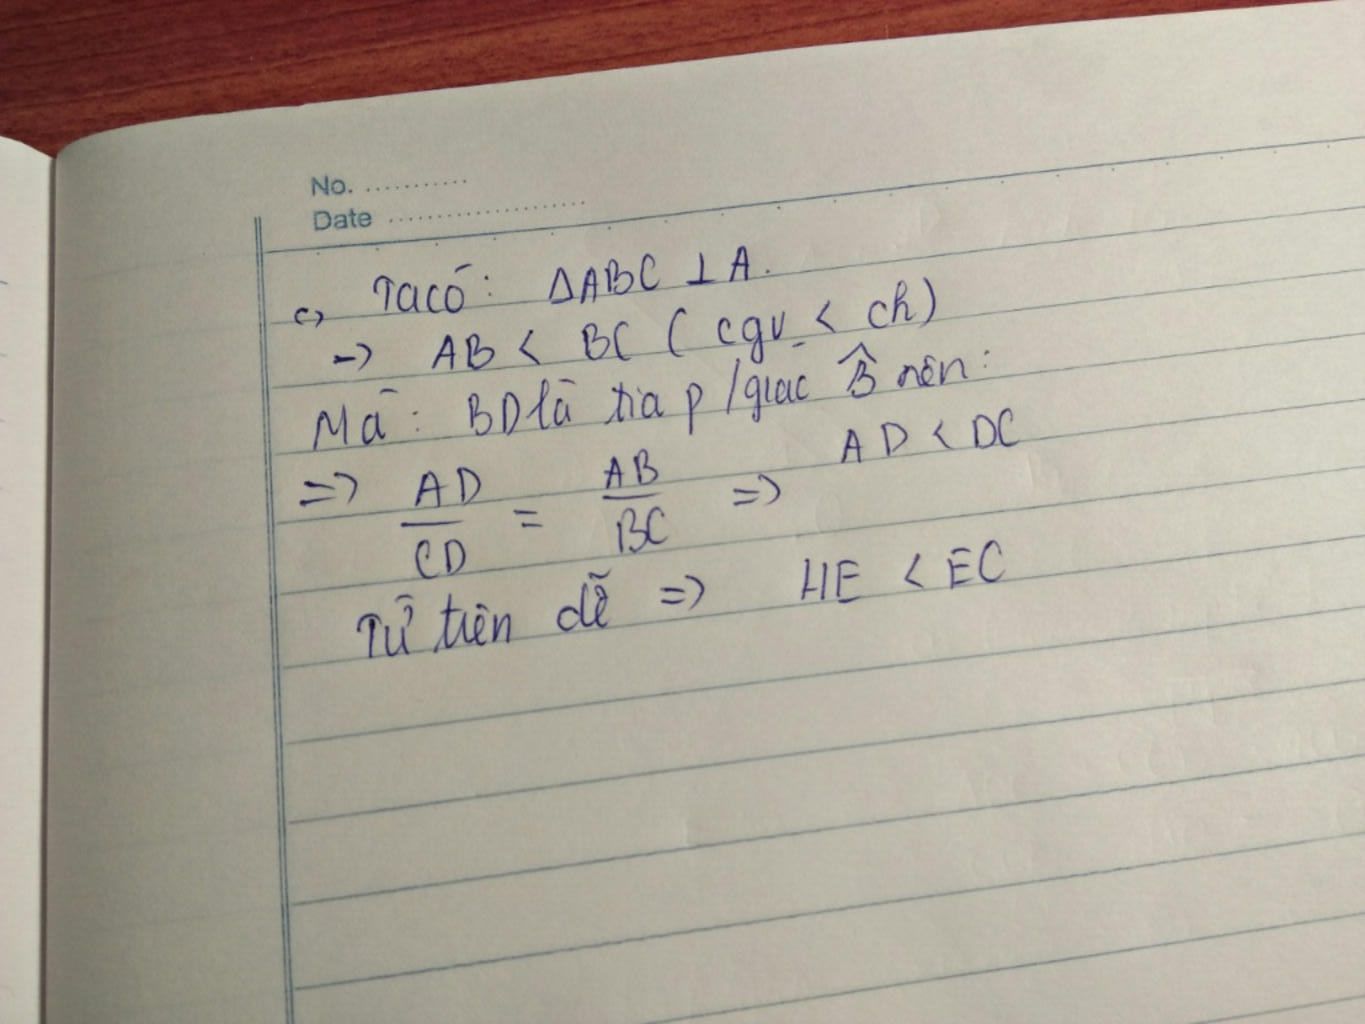 No. ...........
Date ......................
c, Ta có: ΔABC ⊥ A.
-> AB < BC ( cgv < ch)
Mà: BD là tia p/giác B̂ nên:
=> AD/CD = AB/BC => AD < DC
Từ tiên đề => HE < EC